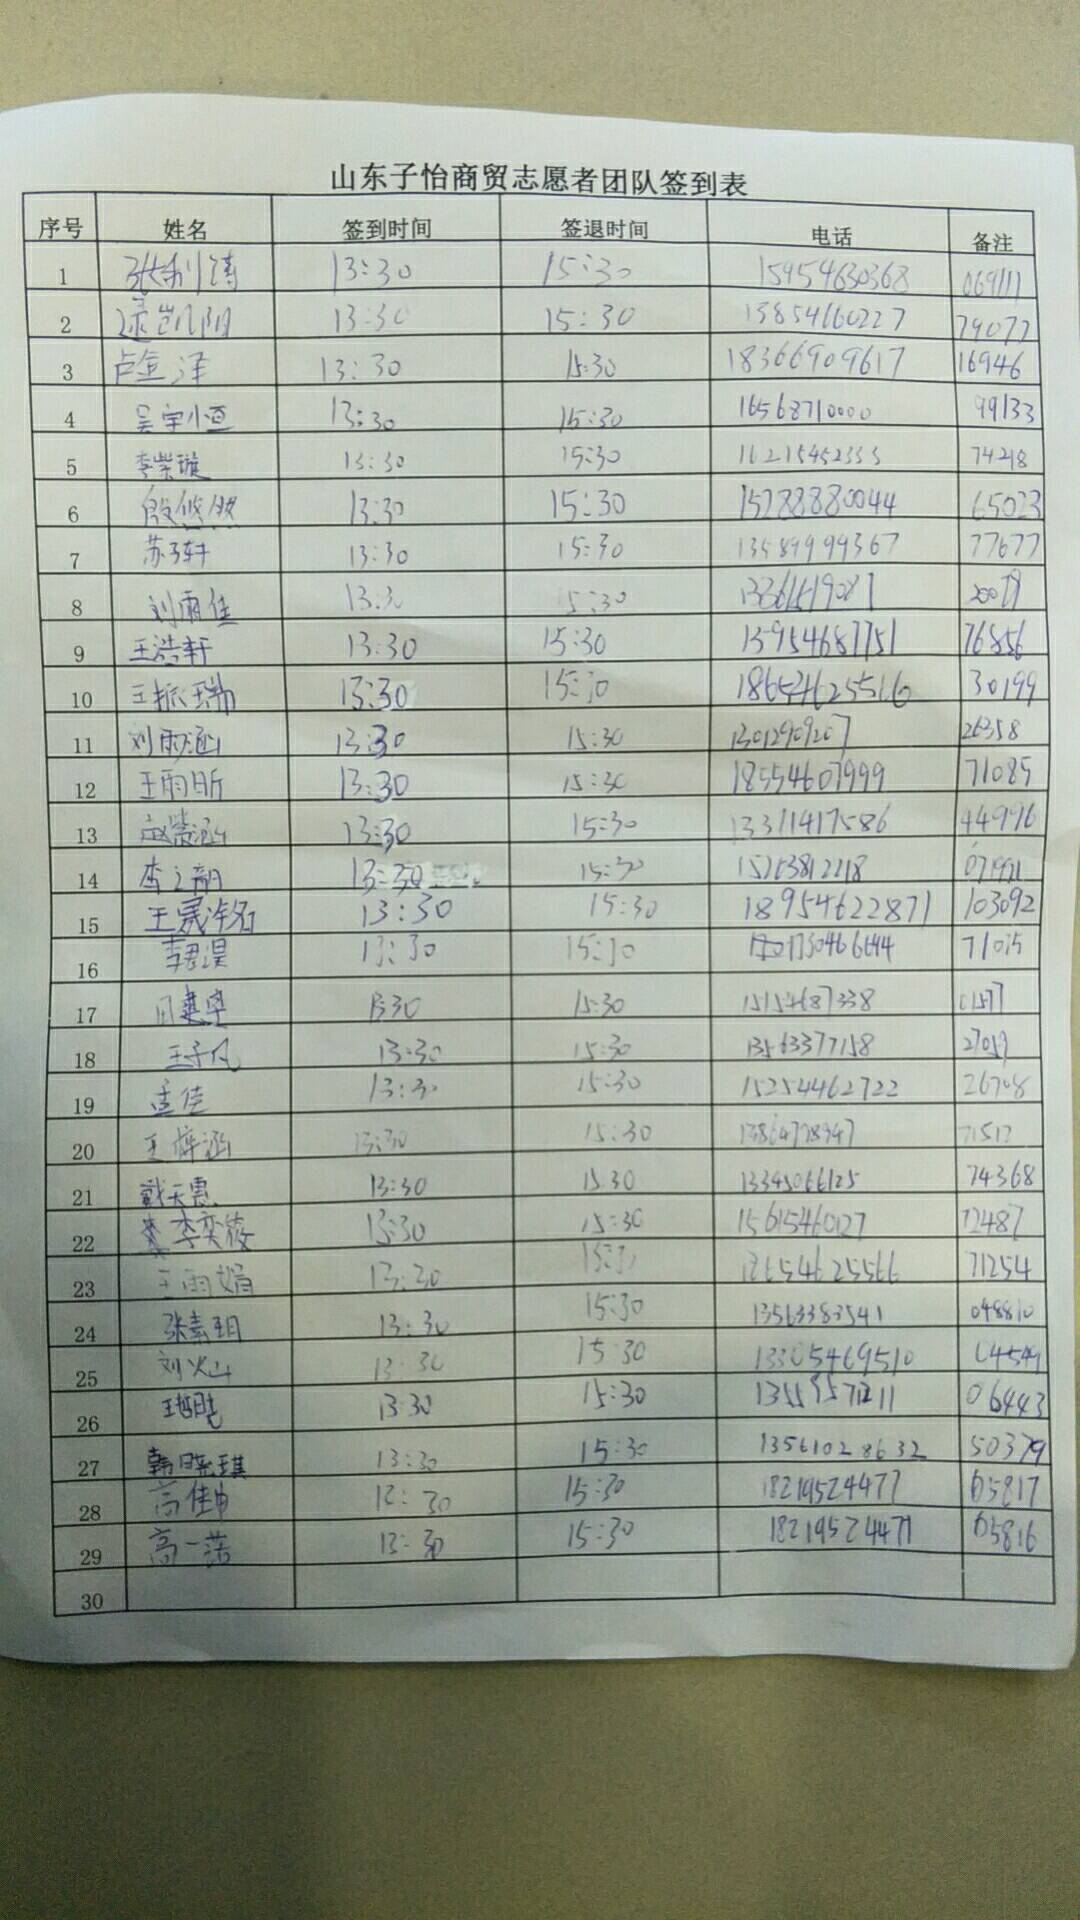 山东子怡商贸志愿者团队签到表
序号 姓名 签到时间 签退时间 电话 备注
1 张利涛 13:30 15:30 15954630368 069111
2 逯凯阳 13:30 15:30 13854660227 79077
3 卢金泽 13:30 15:30 18366909617 16946
4 吴宇恒 13:30 15:30 16568710000 99133
5 李紫璇 13:30 15:30 16215452333 74218
6 殷悠然 13:30 15:30 15288880044 65023
7 苏子轩 13:30 15:30 13589999367 77677
8 刘雨佳 13:30 15:30
9 王浩轩 13:30 15:30 13954687751 76856
10 王振瑞 13:30 15:30 30199
11 刘雨涵 13:30 15:30 13012909207 26358
12 王雨昕 13:30 15:30 18554607999 71085
13 赵紫涵 13:30 15:30 13371417586 44996
14 李之韵 13:30 15:30 15263812218
15 王晟铭 13:30 15:30 18954622871 103092
16 李君淏 13:30 15:30 71015
17 13:30 15:30 15154687338
18 王子凡 13:30 15:30 13563377158 27059
19 孟佳 13:30 15:30 15254462722 26708
20 王梓涵 13:30 15:30
21 戴天惠 13:30 15:30 13345066125 74368
22 李奕筱 13:30 15:30 15615460127 72487
23 王雨娟 13:30 15:30 18654625566 71254
24 张素玥 13:30 15:30 13563383541 048810
25 刘火山 13:30 15:30 13305469510
26 13:30 15:30 06443
27 韩晓琪 13:30 15:30 13561028632 50379
28 高佳申 13:30 15:30 18219524477 65817
29 高一诺 13:30 15:30 18219524471 65816
30